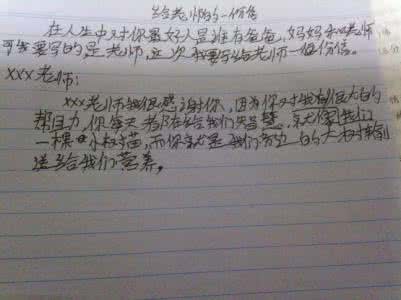 给老师的一份信
在人生中对你最好人是谁有爸爸，妈妈和老师
可我要写的是老师，这次我要写给老师一份信。
xxx老师：
xxx老师我很感谢你，因为你对我有很大的
帮且力，你每天都在给我们智慧，就像我们
一棵小树苗，而你就是我们旁边的大树
送给我们营养，